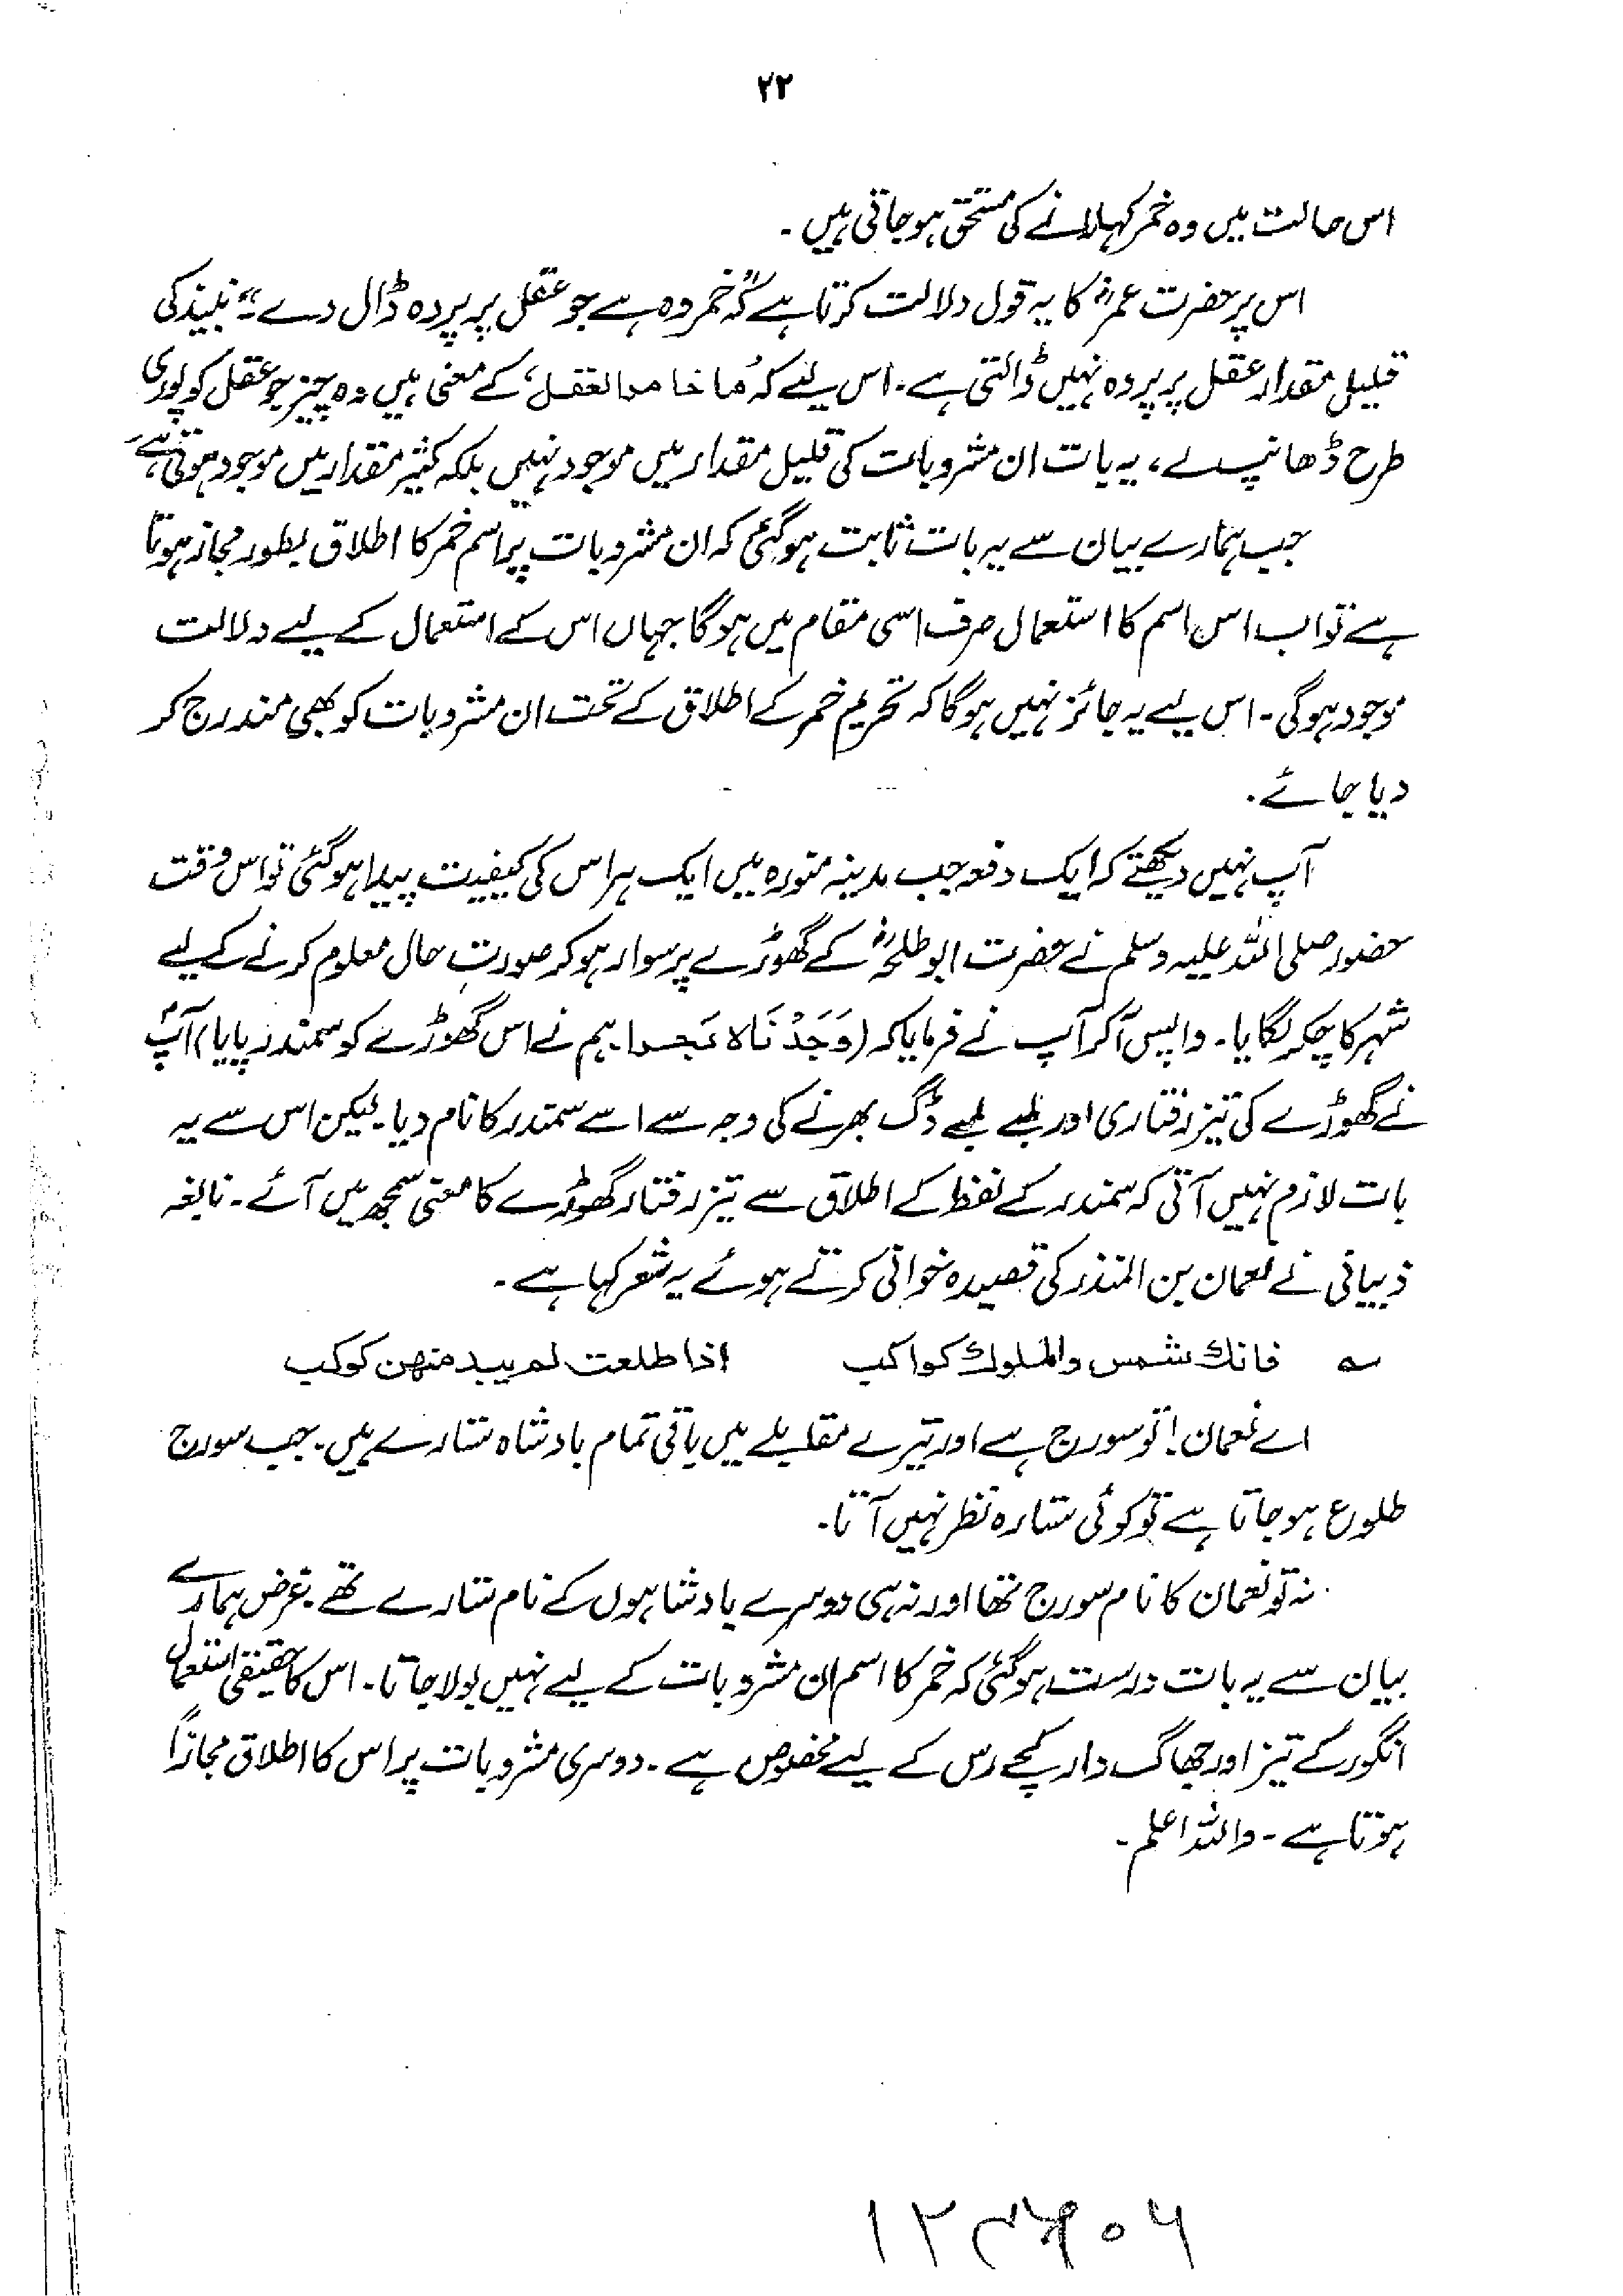 ۲۲
اس حالت میں وہ خمر کہلانے کی مستحق ہوجاتی ہیں۔
اس پر حضرت عمرؓ کا یہ قول دلالت کرتا ہے کہ "خمر وہ ہے جو عقل پر پردہ ڈال دے"۔ نبیذ کی
قلیل مقدار عقل پر پردہ نہیں ڈالتی ہے۔ اس لیے کہ 'ما خامر العقل' کے معنی ہیں وہ چیز جو عقل کو پوری
طرح ڈھانپ لے، یہ بات ان مشروبات کی قلیل مقدار میں موجود نہیں بلکہ کثیر مقدار میں موجود ہوتی ہے۔
جب ہمارے بیان سے یہ بات ثابت ہوگئی کہ ان مشروبات پر اسم خمر کا اطلاق بطور مجاز ہوتا
ہے تو اب اس اسم کا استعمال صرف اسی مقام میں ہوگا جہاں اس کے استعمال کے لیے دلالت
موجود ہوگی۔ اس لیے یہ جائز نہیں ہوگا کہ تحریم خمر کے اطلاق کے تحت ان مشروبات کو بھی مندرج کر
دیا جائے۔
آپ نہیں دیکھتے کہ ایک دفعہ جب مدینہ منورہ میں ایک ہراس کی کیفیت پیدا ہوگئی تو اس وقت
حضور صلی اللہ علیہ وسلم نے حضرت ابوطلحہؓ کے گھوڑے پر سوار ہوکر صورتِ حال معلوم کرنے کے لیے
شہر کا چکر لگایا۔ واپس آکر آپ نے فرمایا کہ (وَجَدْنَاہ بَحرا۔ ہم نے اس گھوڑے کو سمندر پایا) آپؐ
نے گھوڑے کی تیز رفتاری اور لمبے لمبے ڈگ بھرنے کی وجہ سے اسے سمندر کا نام دیا۔ لیکن اس سے یہ
بات لازم نہیں آتی کہ سمندر کے لفظ کے اطلاق سے تیز رفتار گھوڑے کا معنی سمجھ میں آئے۔ نابغہ
ذبیانی نے نعمان بن المنذر کی قصیدہ خوانی کرتے ہوئے یہ شعر کہا ہے۔
؎ فانك شمس والملوك كواكب اذا طلعت لم يبد منهن كوكب
اے نعمان! تو سورج ہے اور تیرے مقابلے میں باقی تمام بادشاہ ستارے ہیں۔ جب سورج
طلوع ہوجاتا ہے تو کوئی ستارہ نظر نہیں آتا۔
نہ تو نعمان کا نام سورج تھا اور نہ ہی دوسرے بادشاہوں کے نام ستارے تھے۔ غرض ہمارے
بیان سے یہ بات درست ہوگئی کہ خمر کا اسم ان مشروبات کے لیے نہیں بولا جاتا۔ اس کا حقیقی استعمال
انگور کے تیز اور جھاگ دار کچے رس کے لیے مخصوص ہے۔ دوسری مشروبات پر اس کا اطلاق مجازاً
ہوتا ہے۔ واللہ اعلم۔